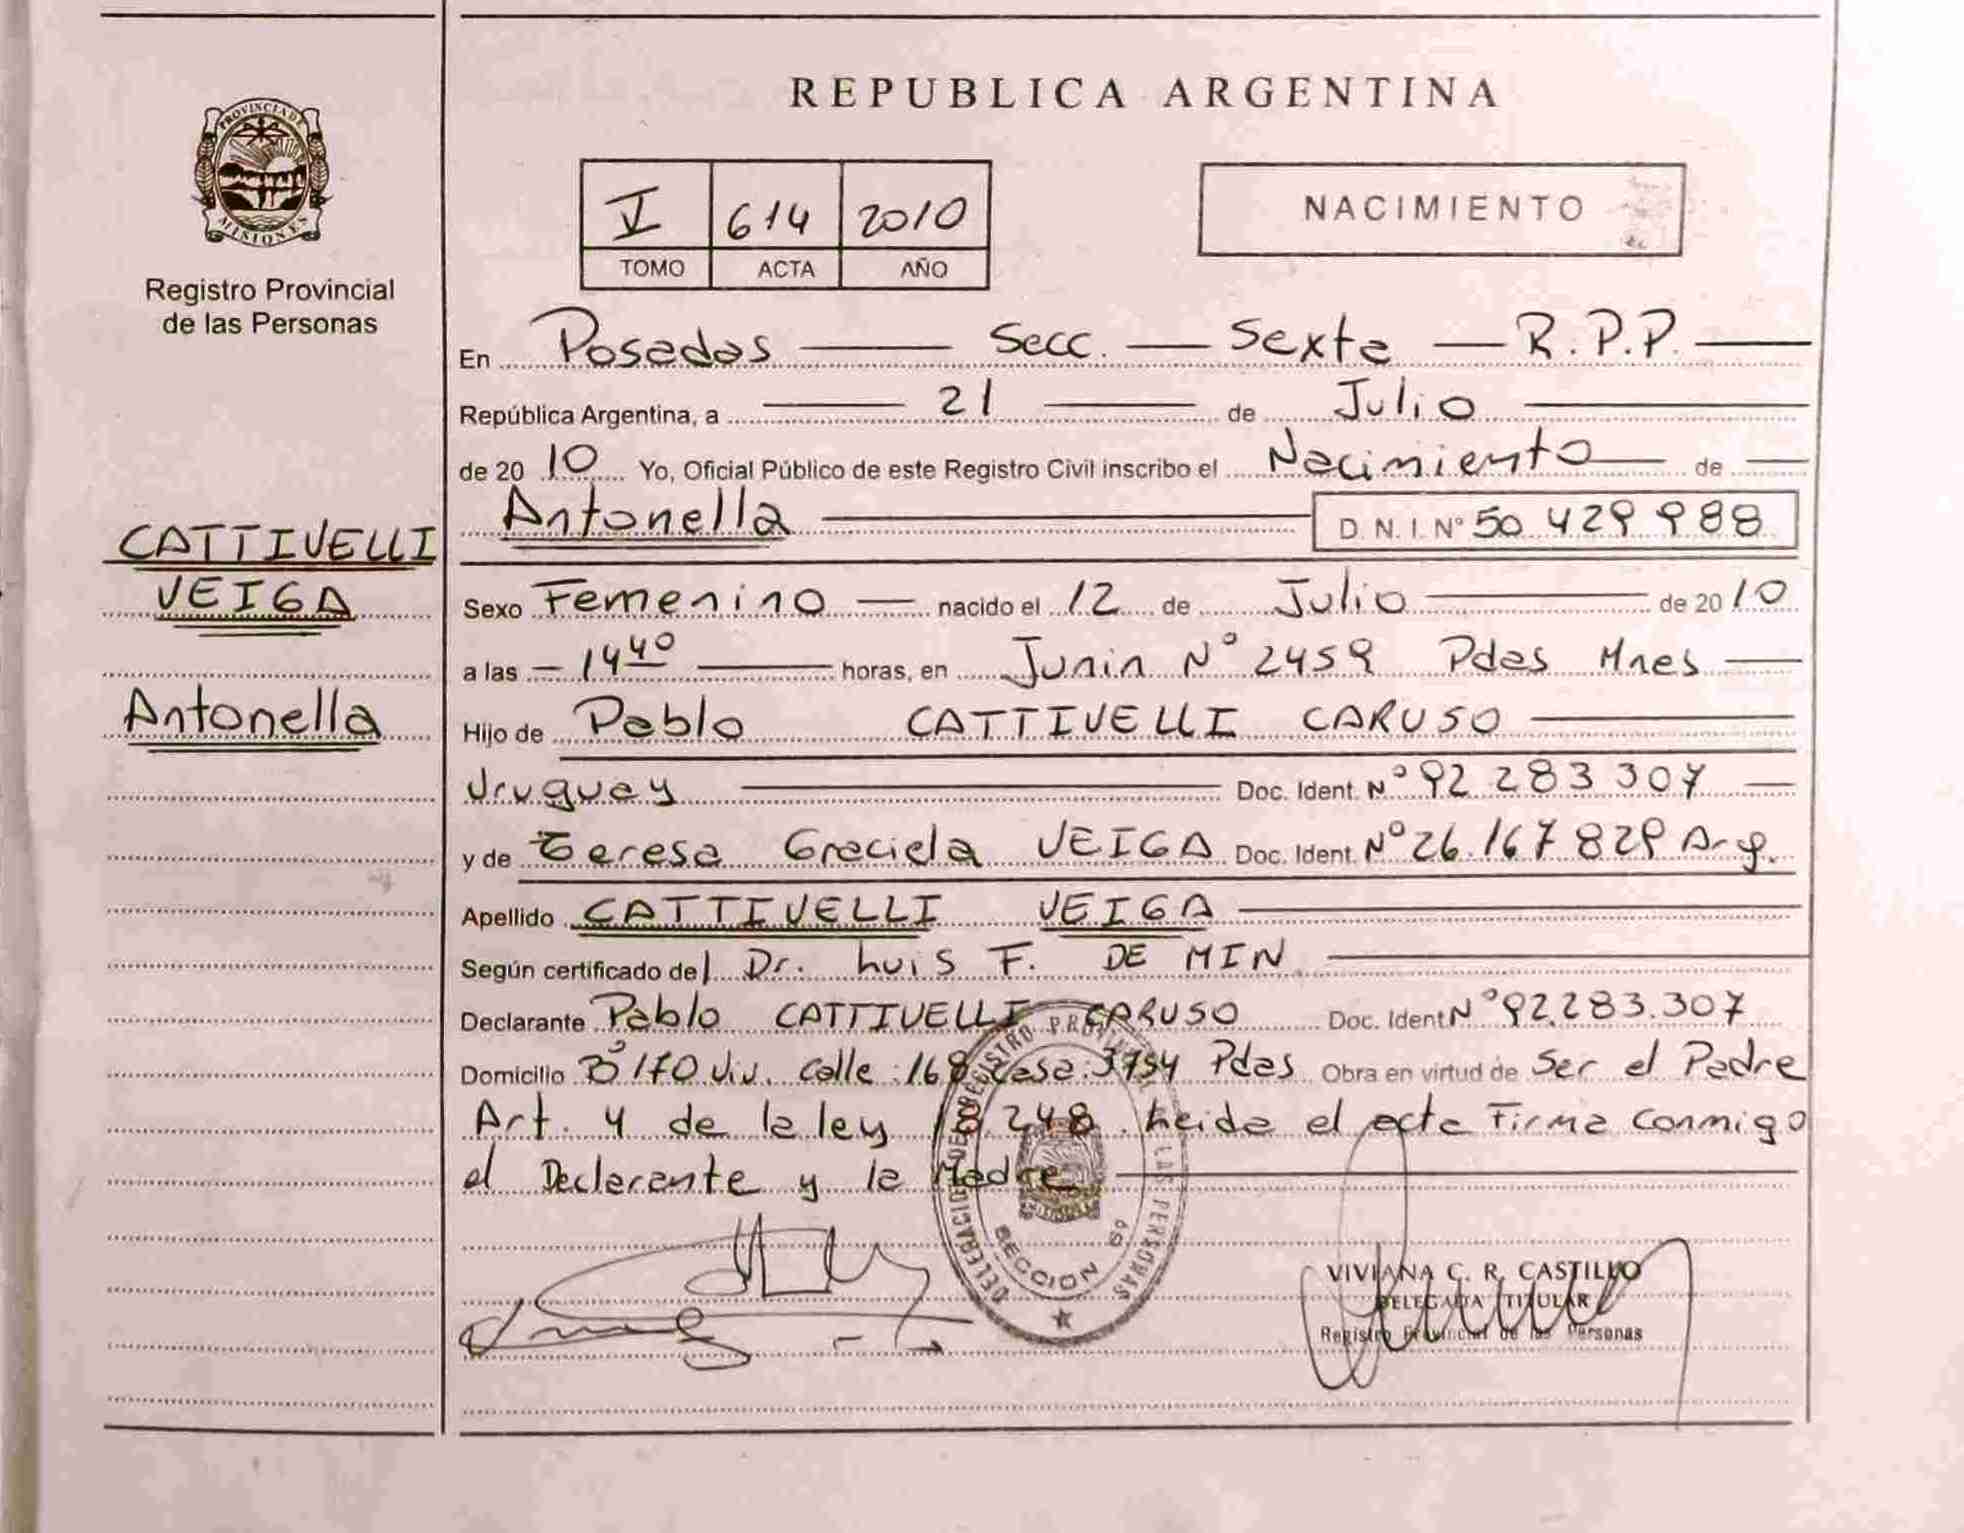 REPUBLICA ARGENTINA
PROVINCIA DE MISIONES
Registro Provincial
de las Personas
V 614 2010
TOMO ACTA AÑO
NACIMIENTO
En Posadas Secc. Sexta R.P.P.
República Argentina, a 21 de Julio
de 2010 Yo, Oficial Público de este Registro Civil inscribo el Nacimiento de
Antonella D.N.I. N° 50 429 988
CATTIVELLI
VEIGA
Antonella
Sexo Femenino nacido el 12 de Julio de 2010
a las 14 40 horas, en Junin N° 2459 Pdas Mnes
Hijo de Pablo CATTIVELLI CARUSO
Uruguay Doc. Ident. N° 92 283 307
y de Teresa Graciela VEIGA Doc. Ident. N° 26.167 829 Arg.
Apellido CATTIVELLI VEIGA
Según certificado del Dr. Luis F. DE MIN
Declarante Pablo CATTIVELLI CARUSO Doc. Ident. N° 92.283.307
Domicilio B° 170 Viv. Calle: 168 Casa: 3754 Pdas Obra en virtud de Ser el Padre
Art. 4 de la ley 18.248. Leida el acta Firma Conmigo
el Declarante y la Madre
REGISTRO PROVINCIAL DE LAS PERSONAS
SECCION 6a
VIVIANA C. R. CASTILLO
DELEGADA TITULAR
Registro Provincial de las Personas